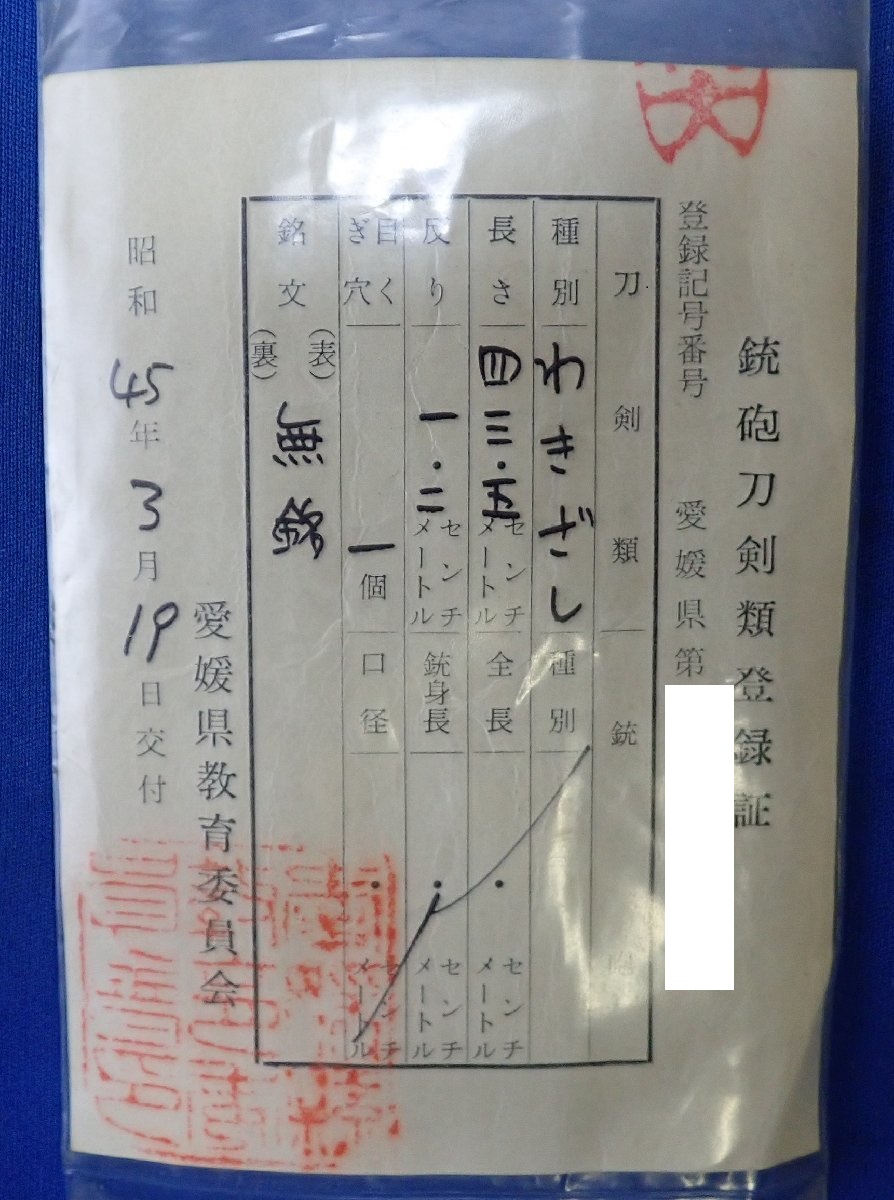 銃砲刀剣類登録証
登録記号番号 愛媛県第
刀剣類 銃
種別 わきざし 種別
長さ 四三.五 センチメートル 全長 . センチメートル
反り 一.二 センチメートル 銃身長 . センチメートル
目くぎ穴 一個 口径 . センチメートル
銘文 (表) (裏) 無銘
愛媛県教育委員会
昭和45年3月19日交付